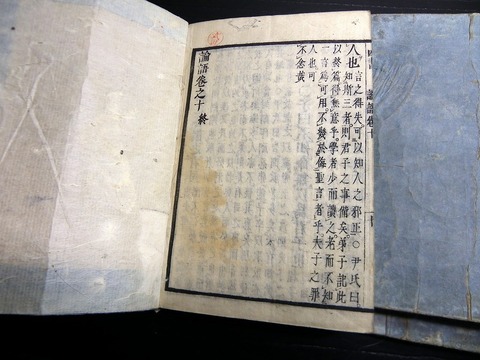 論語卷十
人也
言之得失可以知人之邪正○尹氏曰
知斯三者則君子之事備矣弟子記此
以終篇得無意乎學者少而讀之老而不知
一言爲可用不幾於侮聖言者乎夫子之罪
人也可
不念哉
論語卷之十終